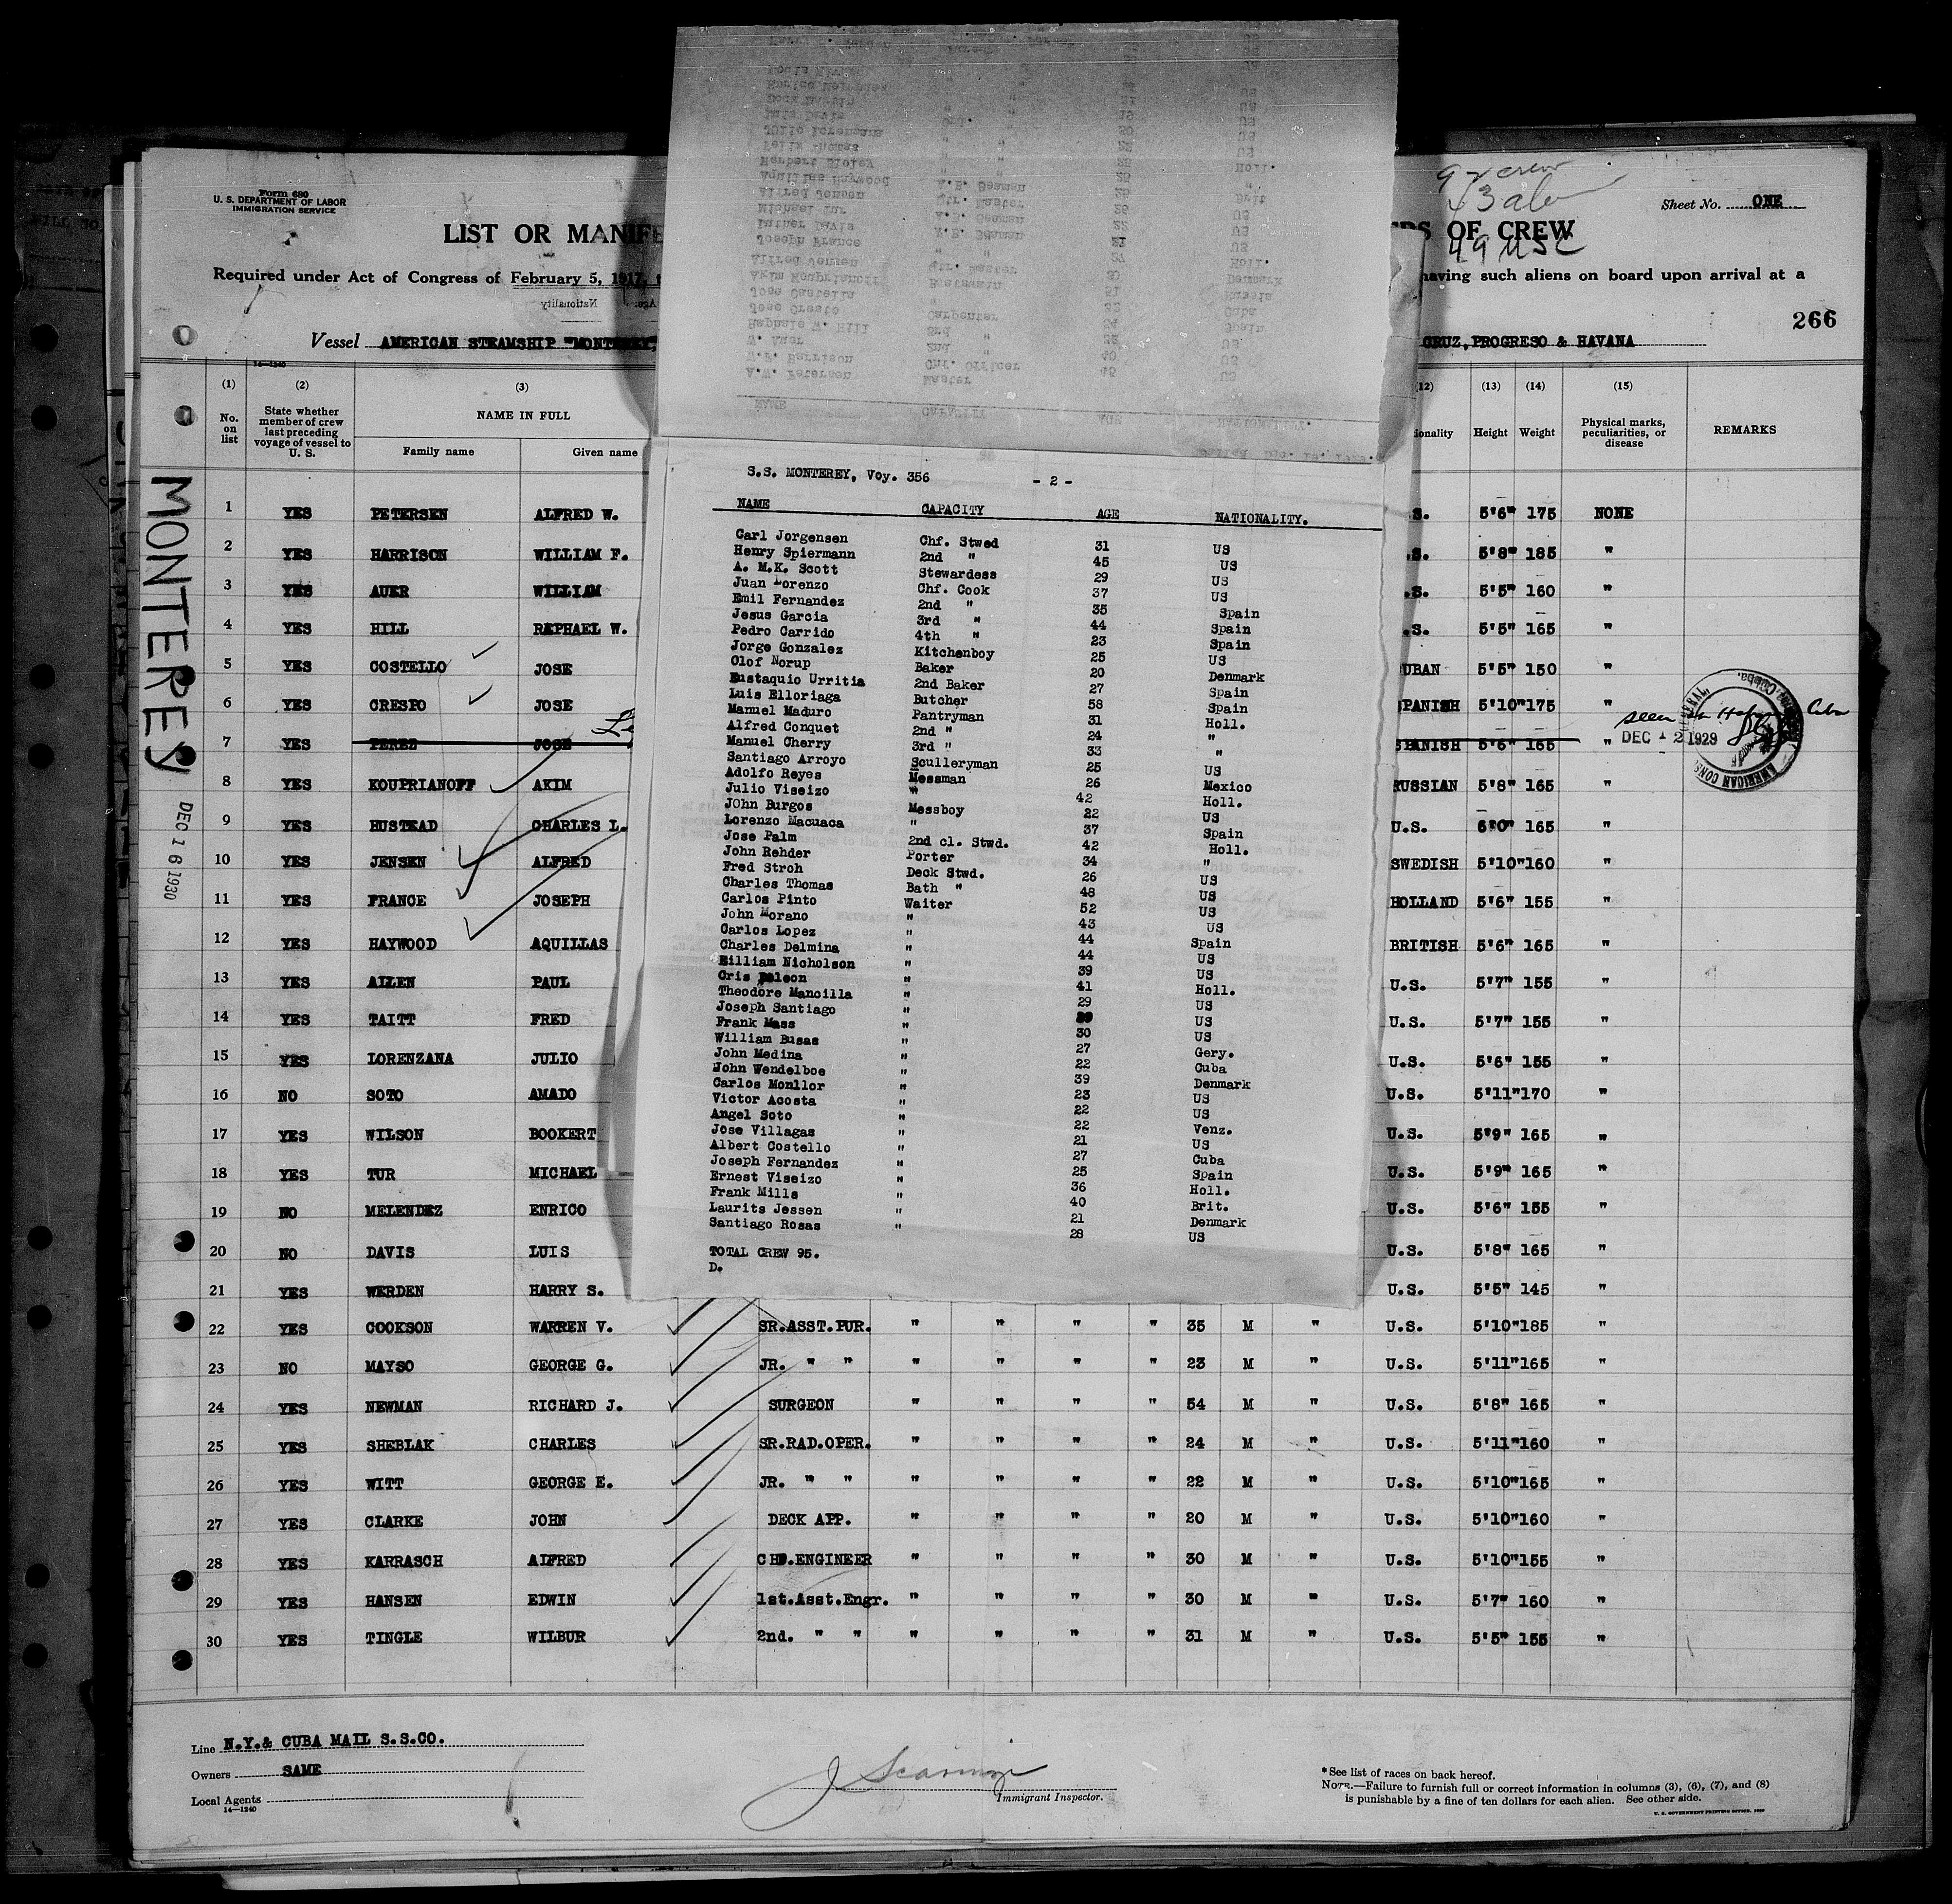 Form 680
U. S. DEPARTMENT OF LABOR
IMMIGRATION SERVICE
Sheet No. ONE
LIST OR MANIFE
OF CREW
49 USC
Required under Act of Congress of February 5, 1917,
having such aliens on board upon arrival at a
266
Vessel AMERICAN STEAMSHIP "MONTEREY,
CRUZ, PROGRESO & HAVANA
14—1240
(1) (2) (3) (12) (13) (14) (15)
No. on list
State whether member of crew last preceding voyage of vessel to U. S.
NAME IN FULL
Family name Given name
ionality Height Weight
Physical marks, peculiarities, or disease
REMARKS
MONTEREY DEC 16 1930
1 YES PETERSEN ALFRED W. S. 5'6" 175 NONE
2 YES HARRISON WILLIAM F. .S. 5'8" 185 "
3 YES AUER WILLIAM .S. 5'5" 160 "
4 YES HILL RAPHAEL W. .S. 5'5" 165 "
5 YES COSTELLO JOSE UBAN 5'5" 150 "
6 YES CRESPO JOSE PANISH 5'10" 175 "
7 YES PEREZ JOSE SPANISH 5'6" 165 "
8 YES KOUPRIANOFF AKIM RUSSIAN 5'8" 165 "
9 YES HUSTEAD CHARLES L. U.S. 6'0" 165 "
10 YES JENSEN ALFRED SWEDISH 5'10" 160 "
11 YES FRANCE JOSEPH HOLLAND 5'6" 155 "
12 YES HAYWOOD AQUILLAS BRITISH 5'6" 165 "
13 YES ALLEN PAUL U.S. 5'7" 155 "
14 YES TAITT FRED U.S. 5'7" 155 "
15 YES LORENZANA JULIO U.S. 5'6" 155 "
16 NO SOTO AMADO U.S. 5'11" 170 "
17 YES WILSON BOOKERT U.S. 5'9" 165 "
18 YES TUR MICHAEL U.S. 5'9" 165 "
19 NO MELENDEZ ENRICO U.S. 5'6" 155 "
20 NO DAVIS LUIS U.S. 5'8" 165 "
21 YES WERDEN HARRY S. U.S. 5'5" 145 "
22 YES COOKSON WARREN V. SR.ASST.PUR. " " " " 35 M " U.S. 5'10" 185 "
23 NO MAYSO GEORGE G. JR. " " " " " " 23 M " U.S. 5'11" 165 "
24 YES NEWMAN RICHARD J. SURGEON " " " " 54 M " U.S. 5'8" 165 "
25 YES SHEBLAK CHARLES SR.RAD.OPER. " " " " 24 M " U.S. 5'11" 160 "
26 YES WITT GEORGE E. JR. " " " " " " 22 M " U.S. 5'10" 165 "
27 YES CLARKE JOHN DECK APP. " " " " 20 M " U.S. 5'10" 160 "
28 YES KARRASCH ALFRED CH.ENGINEER " " " " 30 M " U.S. 5'10" 155 "
29 YES HANSEN EDWIN 1st.Asst.Engr. " " " " 30 M " U.S. 5'7" 160 "
30 YES TINGLE WILBUR 2nd. " " " " " " 31 M " U.S. 5'5" 155 "
seen in Cuba
DEC 12 1929
AMERICAN CONS
S.S. MONTEREY, Voy. 356 - 2 -
NAME CAPACITY AGE NATIONALITY.
Carl Jorgensen Chf. Stwed 31 US
Henry Spiermann 2nd " 45 US
A. M.K. Scott Stewardess 29 US
Juan Lorenzo Chf. Cook 37 US
Emil Fernandez 2nd " 35 Spain
Jesus Garcia 3rd " 44 Spain
Pedro Carrido 4th " 23 Spain
Jorge Gonzalez Kitchenboy 25 US
Olof Norup Baker 20 Denmark
Eustaquio Urritia 2nd Baker 27 Spain
Luis Elloriaga Butcher 58 Spain
Manuel Maduro Pantryman 31 Holl.
Alfred Conquet 2nd " 24 "
Manuel Cherry 3rd " 33 "
Santiago Arroyo Sculleryman 25 US
Adolfo Reyes Messman 26 Mexico
Julio Viseizo " 42 Holl.
John Burgos Messboy 22 US
Lorenzo Macuaca " 37 Spain
Jose Palm 2nd cl. Stwd. 42 Holl.
John Rehder Porter 34 "
Fred Stroh Deck Stwd. 26 US
Charles Thomas Bath " 48 US
Carlos Pinto Waiter 52 US
John Morano " 43 US
Carlos Lopez " 44 Spain
Charles Delmina " 44 US
Eilliam Nicholson " 39 US
Cris Deleon " 41 Holl.
Theodore Mancilla " 29 US
Joseph Santiago " US
Frank Mass " 30 US
William Busas " 27 Gery.
John Medina " 22 Cuba
John Wendelboe " 39 Denmark
Carlos Monllor " 23 US
Victor Acosta " 22 US
Angel Soto " 22 Venz.
Jose Villagas " 21 US
Albert Costello " 27 Cuba
Joseph Fernandez " 25 Spain
Ernest Viseizo " 36 Holl.
Frank Mills " 40 Brit.
Laurits Jessen " 21 Denmark
Santiago Rosas " 28 US
TOTAL CREW 95.
D.
Line N.Y.& CUBA MAIL S.S.CO.
Owners SAME
Local Agents
14—1240
Immigrant Inspector.
*See list of races on back hereof.
NOTE.—Failure to furnish full or correct information in columns (3), (6), (7), and (8)
is punishable by a fine of ten dollars for each alien. See other side.
U. S. GOVERNMENT PRINTING OFFICE